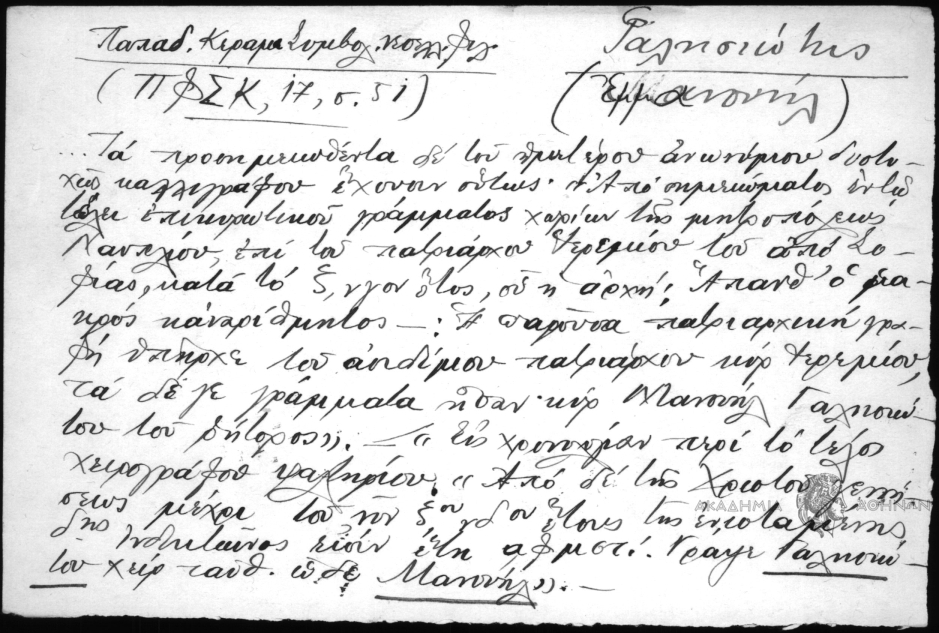 Παπαδ. Κεραμ. Συμβολ. νεοελλ. φιλ.
(ΠΦΣΚ, 17, σ. 51)
Γαλησιώτης
(Ἐμμανουήλ)
... Τά προσημειωθέντα δέ τοῦ ἡμετέρου ἀνωνύμου δυστυ-
χοῦς καλλιγράφου ἔχουσιν οὕτως· «Ἀπό σημειώματος ἐν τῷ
τέλει ἐπικυρωτικοῦ γράμματος χωρίων τῆς μητροπόλεως
Ναυπλίου, ἐπί τοῦ πατριάρχου Ἱερεμίου τοῦ ἀπό Σο-
φίας, κατά τό ξ, νγον ἔτος, οὗ ἡ ἀρχή! Ἅπανθ' ὁ μα-
κρός κἀναρίθμητος —: Ἡ παροῦσα πατριαρχική γρα-
φή ὑπῆρχε τοῦ ἀοιδίμου πατριάρχου κύρ Ἱερεμίου,
τά δέ γε γράμματα ἦσαν κύρ Μανουήλ Γαλησιώ-
του τοῦ ῥήτορος». — « Εἰς χρονογρ. περί τό τέλος
χειρογράφου ψαλτηρίου. « Ἀπό δέ τῆς Χριστοῦ γεννή-
σεως μέχρι τοῦ νῦν ξου νδου ἔτους τῆς ἐνισταμένης
δης Ἰνδικτιῶνος εἰσίν ἔτη αφμστ΄. Γράψε Γαλησιώ-
του χείρ ταῦθ' ὧδε Μανουήλ». —
ΑΚΑΔΗΜΙΑ ΑΘΗΝΩΝ